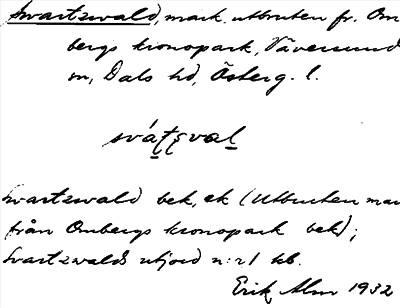 Svartzwald, mark, utbruten fr. Om-
bergs kronopark, Väversunda
sn, Dals hd, Österg. l.
svátsval
Svartzwald bek, ek (Utbruten mark
från Ombergs kronopark bek);
Svartzwalds utjord n:r 1 hb.
Erik Alm 1932